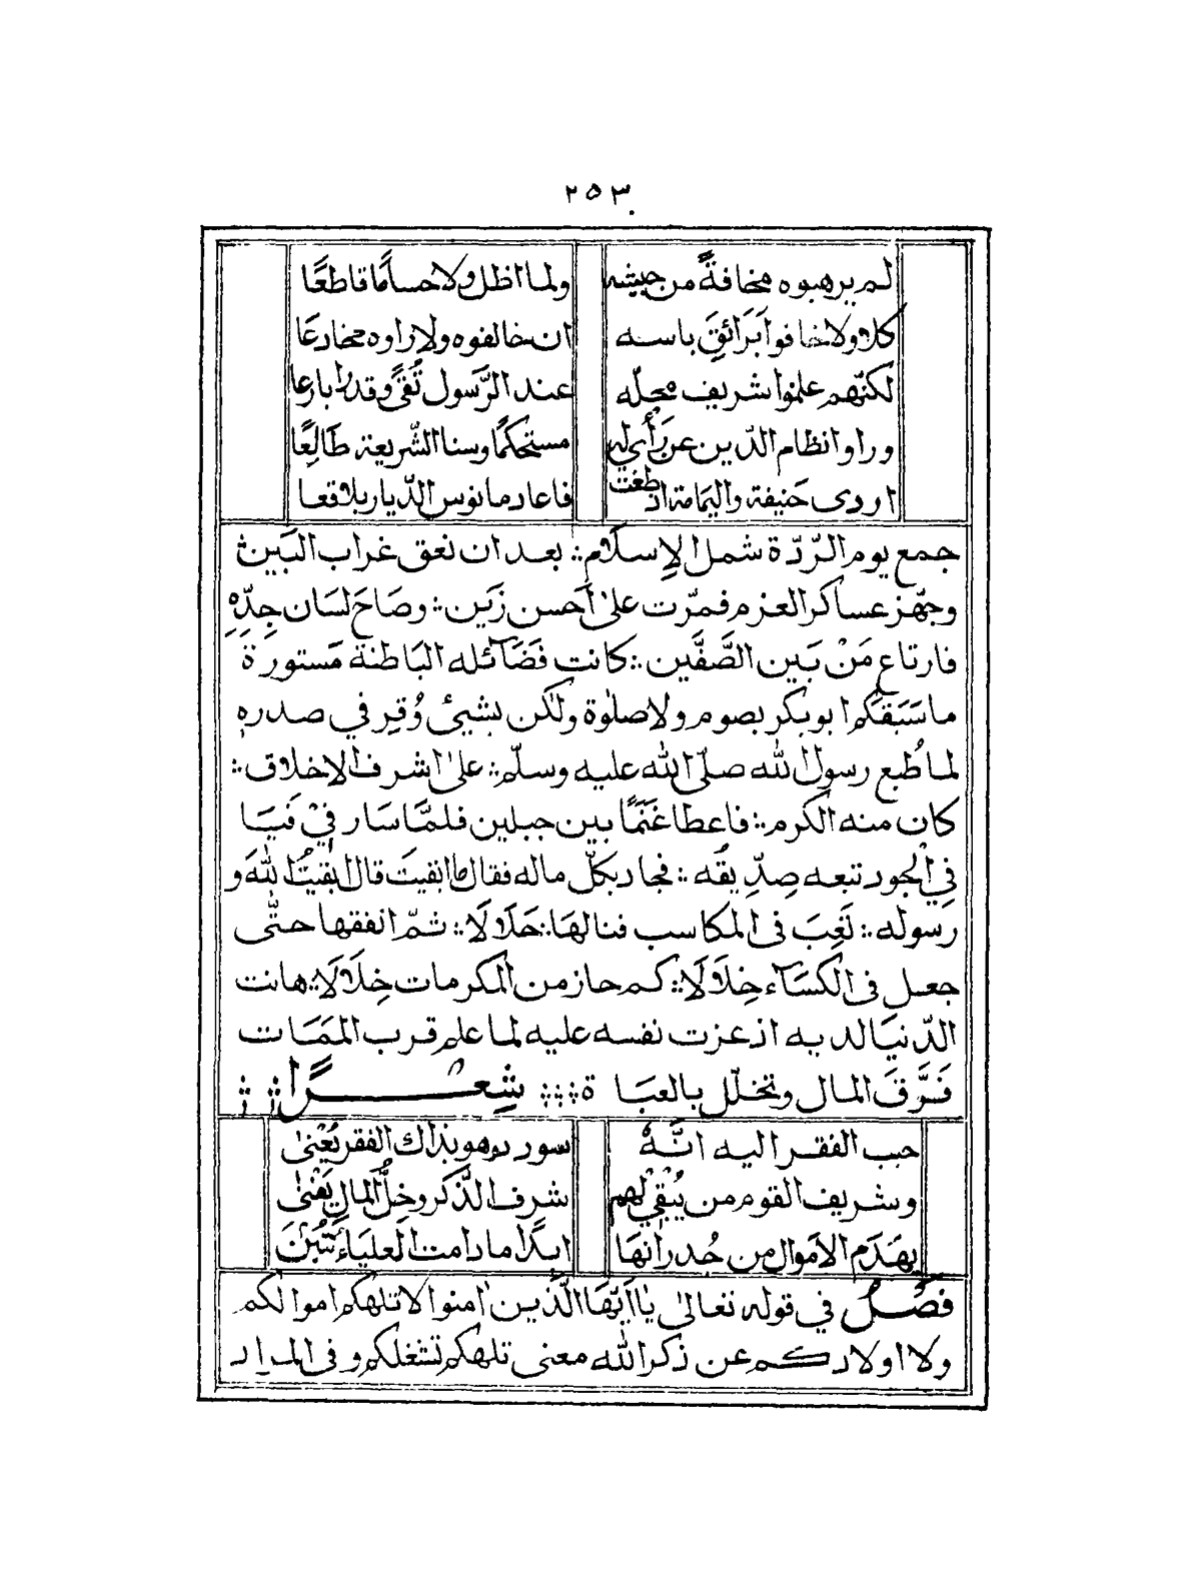 ٢٥٣
لم يرهبوه مخافةً من جيشه ولما اظل ولا حسامًا قاطعًا
كلا ولا خافوا بَرَائقِ باسه ان خالفوه ولا راوه مخادعَا
لكنّهم علموا شريف محلّه عند الرَّسول تُقىً وقدرًا بارعا
وراوا نظام الدّين عن رَأي له مستحكمًا وسنا الشّريعة طَالِعًا
اردى حَنيفة واليمَامة اذ طغت فاعاد مانوس الدّيار بلاقعا
جمع يوم الرّدّة شمل الإسلام ؞ بعد ان نعق غراب البَين ؞
وجهّز عساكر العزم فمرّت على احسن زَين ؞ وصَاحَ لسَان جِدِّهِ
فارتاع مَنْ بَين الصَّفَّين ؞ كانت فضَائله البَاطنة مَستورة
ما سَبَقَكم ابو بكر بصوم ولا صلوٰة ولٰكن بشيئ وُقِر في صدره
لما طُبع رسول الله صلّى الله عليه وسلّم ؞ على اشرف الاخلاق ؞
كان منه الكرم ؞ فاعطا غَنَمًا بين جبلين فلمَّا سَار في فَيَا
في الجود تبعه صِدِّيقُه ؞ فجاد بكلّ ماله فقال ما ابقيتَ قال ابقيتُ اللهَ و
رسوله ؞ تَعِبَ فى المكاسب فنالهَا ؞ حَلَالًا ؞ ثمّ انفقها حتّٰى
جعل فى الكسَآء خِلَالًا ؞ كم حاز من المكرمات خِلَالًا ؞ هانت
الدّنيَا لديه اذ عزت نفسه عليه لما علم قرب المَمَات
فَرَّقَ المال وتخلّل بالعبَاة ؞؞؞ شِعـــرًا
حبب الفقر اليه انَّهُ سودده وهو بذاك الفقر يُغْنٰى
وشريف القوم من يُبْقِيْ لهم شرف الذّكر وخلّ المال يَفْنٰى
يهَدَم الاموال من جُدرانهَا ابدًا ما دامت العليَاءُ تُبْنٰ
فصْلٌ في قوله تعالىٰ يٰاَ ايّهَا الّذين اٰمنوا لا تلهكم اموالكم
ولا اولادكم عن ذكر الله معنى تلهكم تشغلكم وفى المراد